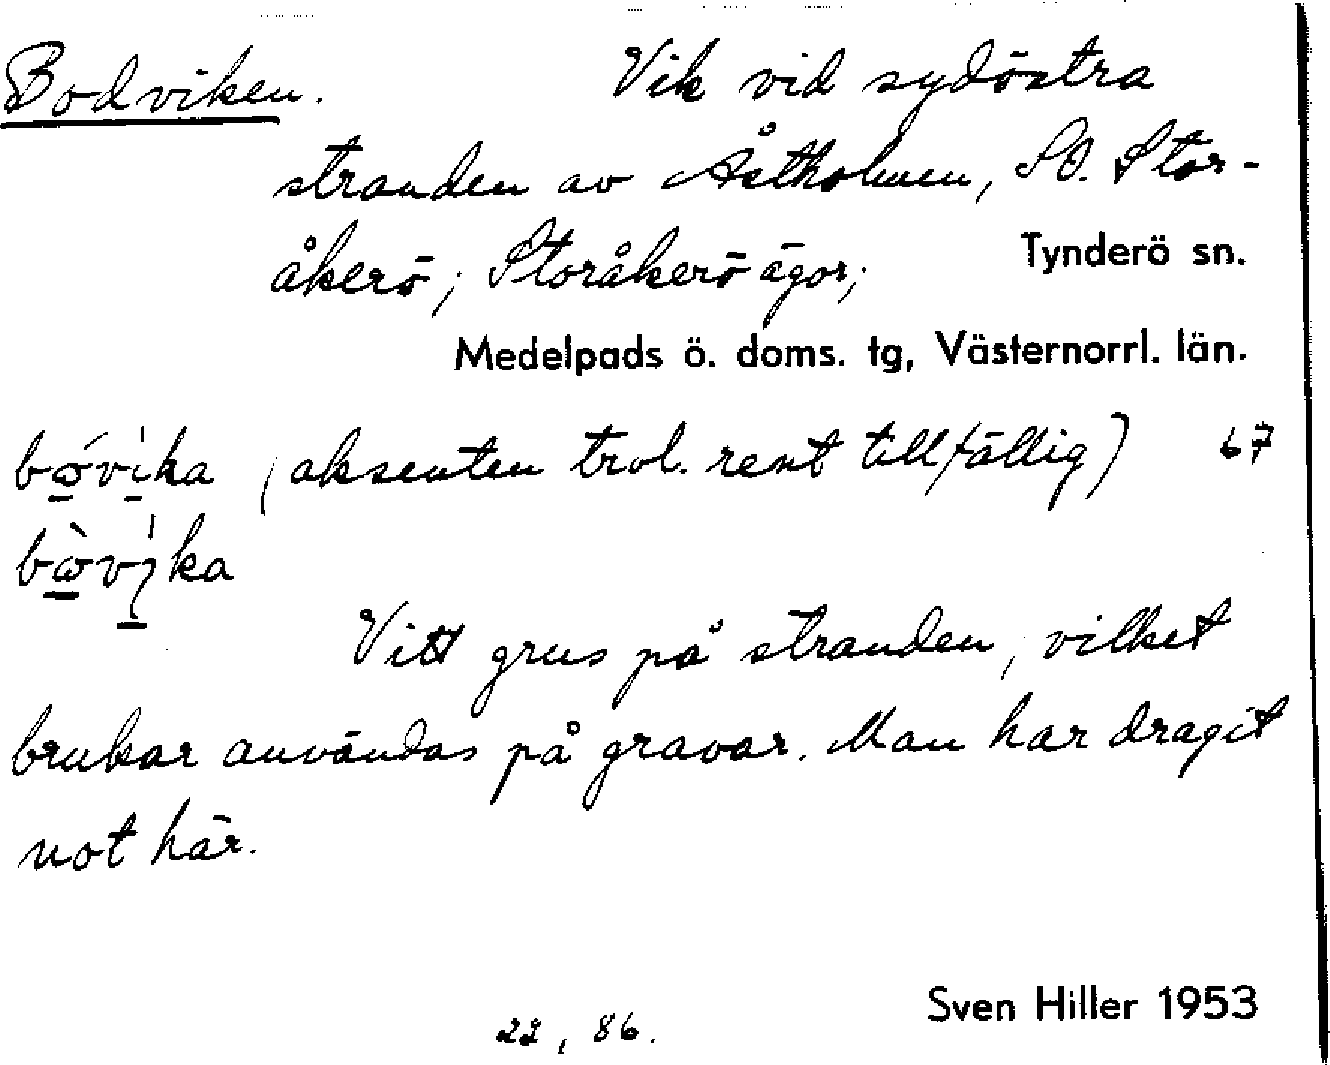 Bodviken. Vik vid sydöstra
stranden av Åstholmen, SO. Stor-
åkerö; Storåkerö ägor; Tynderö sn.
Medelpads ö. doms. tg, Västernorrl. län.
(aksenten trol. rent tillfällig) 67
Vitt grus på stranden, vilket
brukar användas på gravar. Man har dragit
not här.
Sven Hiller 1953
22, 86.